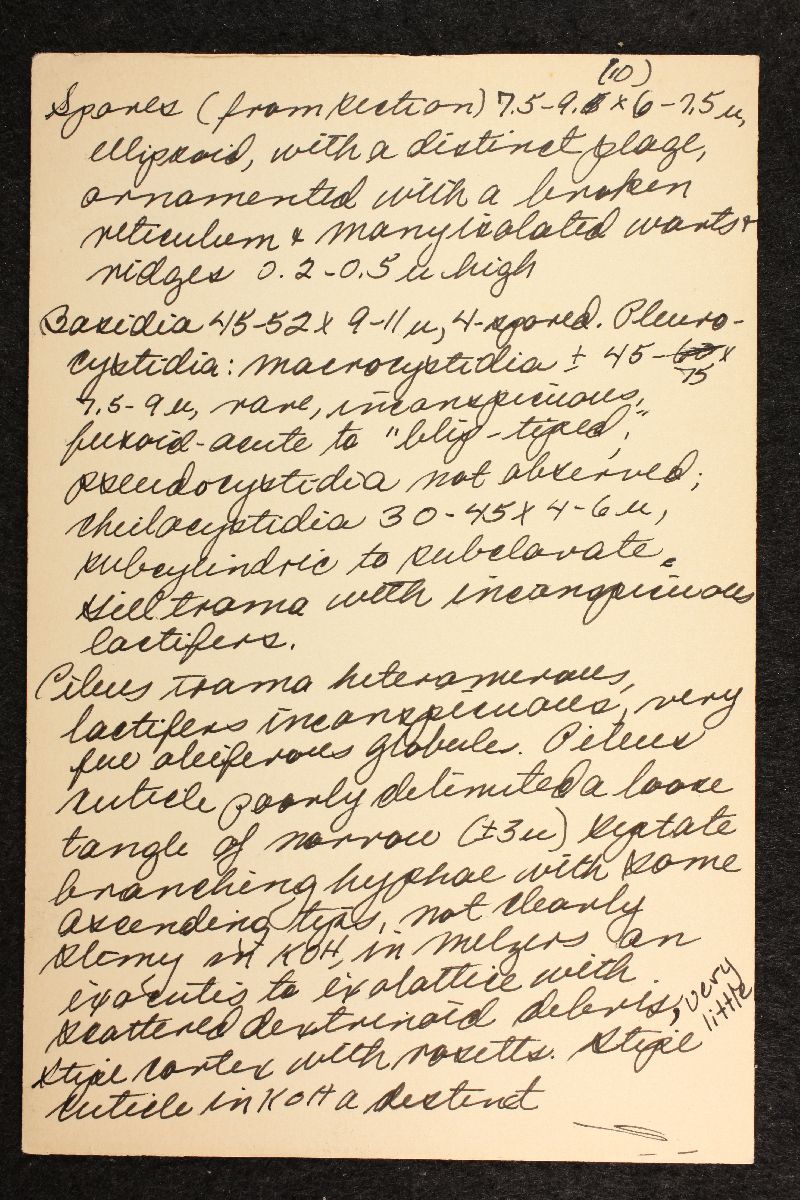 (10)
Spores (from section) 7.5-9. x 6-7.5 u,
ellipsoid, with a distinct plage,
ornamented with a broken
reticulum & many isolated warts &
ridges 0.2-0.5 u high
Basidia 45-52 x 9-11 u, 4-spored. Pleuro-
cystidia: macrocystidia ± 45-60 x
75
7.5-9 u, rare, inconspicuous,
fusoid-acute to "blip-tiped;"
pseudocystidia not observed;
cheilocystidia 30-45 x 4-6 u,
subcylindric to subclavate.
Gill trama with inconspicuous
lactifers.
Pileus trama heteromerous,
lactifers inconspicuous, very
few oleiferous globules. Pileus
cuticle poorly delimited a loose
tangle of norrow (±3u) septate
branching hyphae with some
ascending tips, not clearly
slimy in KOH, in Melzers an
ixocutis to ixolattice with
scattered dextrinoid debris, very
little
Stipe cortex with rosetts. Stipe
cuticle in KOH a destinct